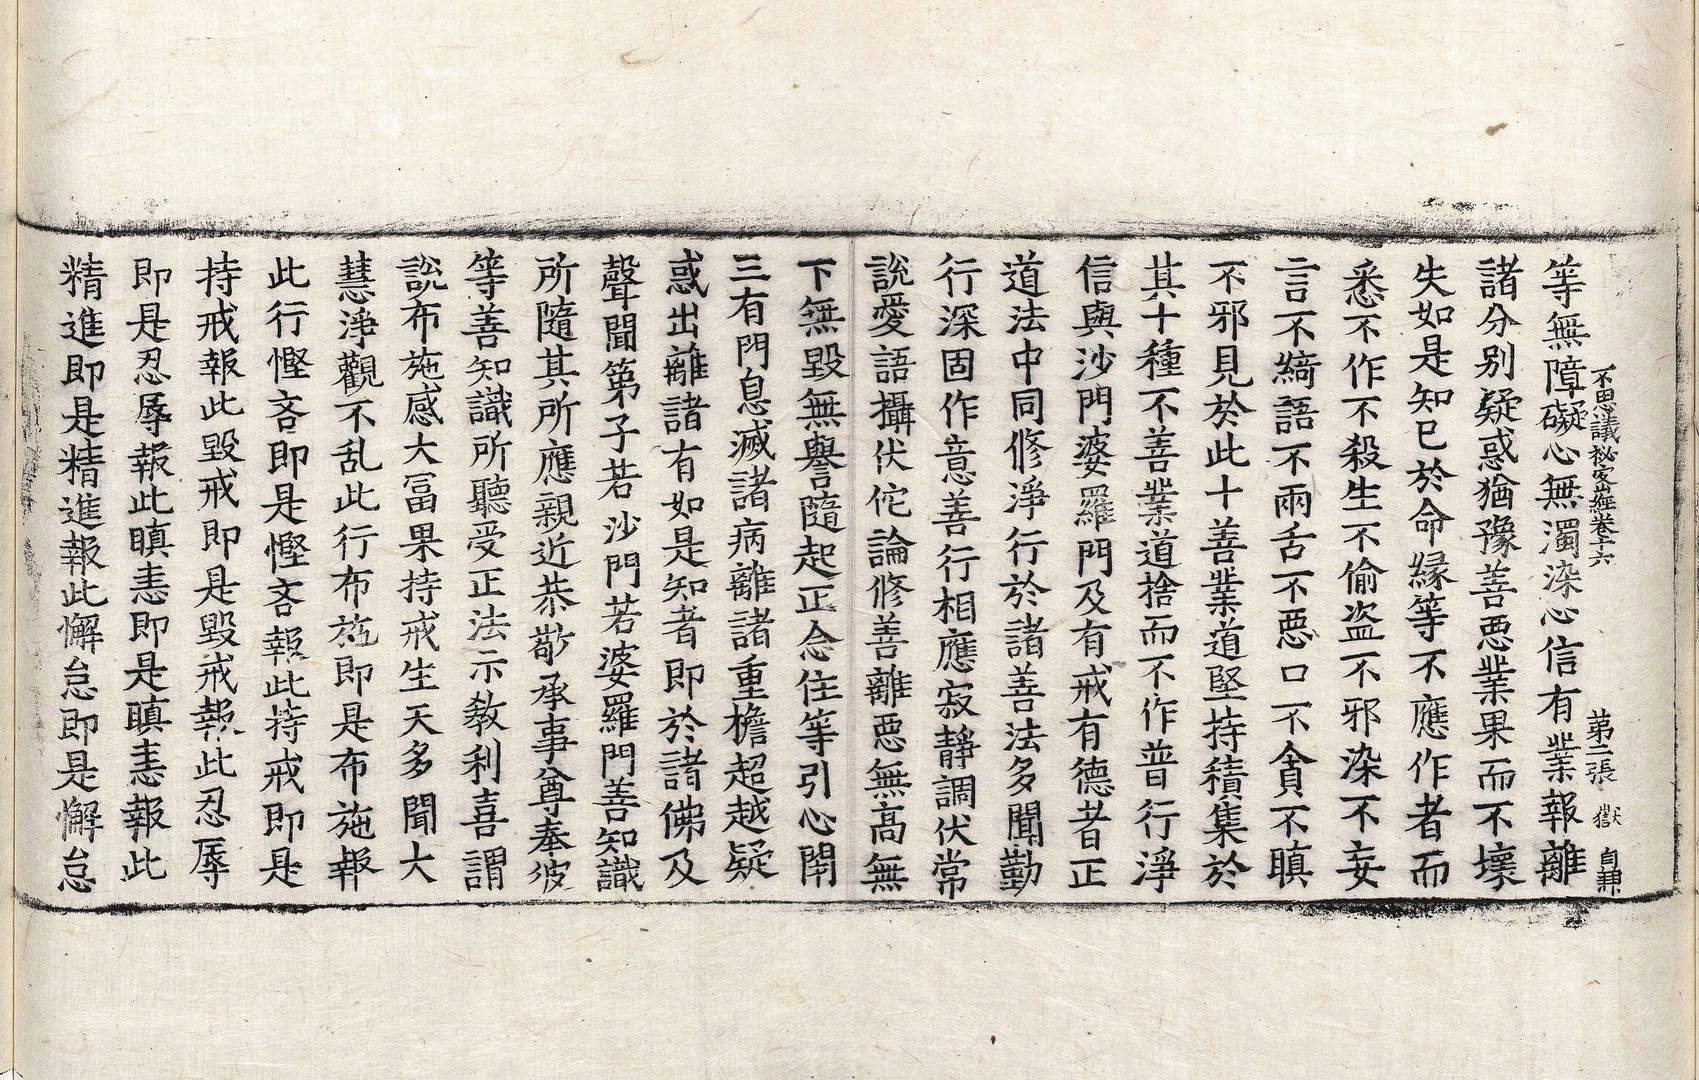 不思議秘密經卷六 第二張 獄 自興
等無障礙心無濁染心信有業報離
諸分别疑惑猶豫善惡業果而不壞
失如是知已於命縁等不應作者而
悉不作不殺生不偷盗不邪染不妄
言不綺語不兩舌不惡口不貪不瞋
不邪見於此十善業道堅持積集於
其十種不善業道捨而不作普行淨
信與沙門婆羅門及有戒有德者正
道法中同修淨行於諸善法多聞勤
行深固作意善行相應寂靜調伏常
說愛語攝伏佗論修善離惡無高無
下無毀無譽隨起正念住等引心閉
三有門息滅諸病離諸重檐超越疑
惑出離諸有如是知者即於諸佛及
聲聞弟子若沙門若婆羅門善知識
所隨其所應親近恭敬承事尊奉彼
等善知識所聽受正法示教利喜謂
說布施感大冨果持戒生天多聞大
慧淨觀不乱此行布施即是布施報
此行慳吝即是慳吝報此持戒即是
持戒報此毀戒即是毀戒報此忍辱
即是忍辱報此瞋恚即是瞋恚報此
精進即是精進報此懈怠即是懈怠